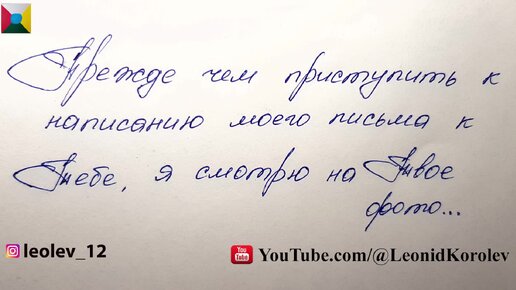 Прежде чем приступить к
написанию моего письма к
Тебе, я смотрю на Твое
фото...
leolev_12
YouTube.com/@LeonidKorolev